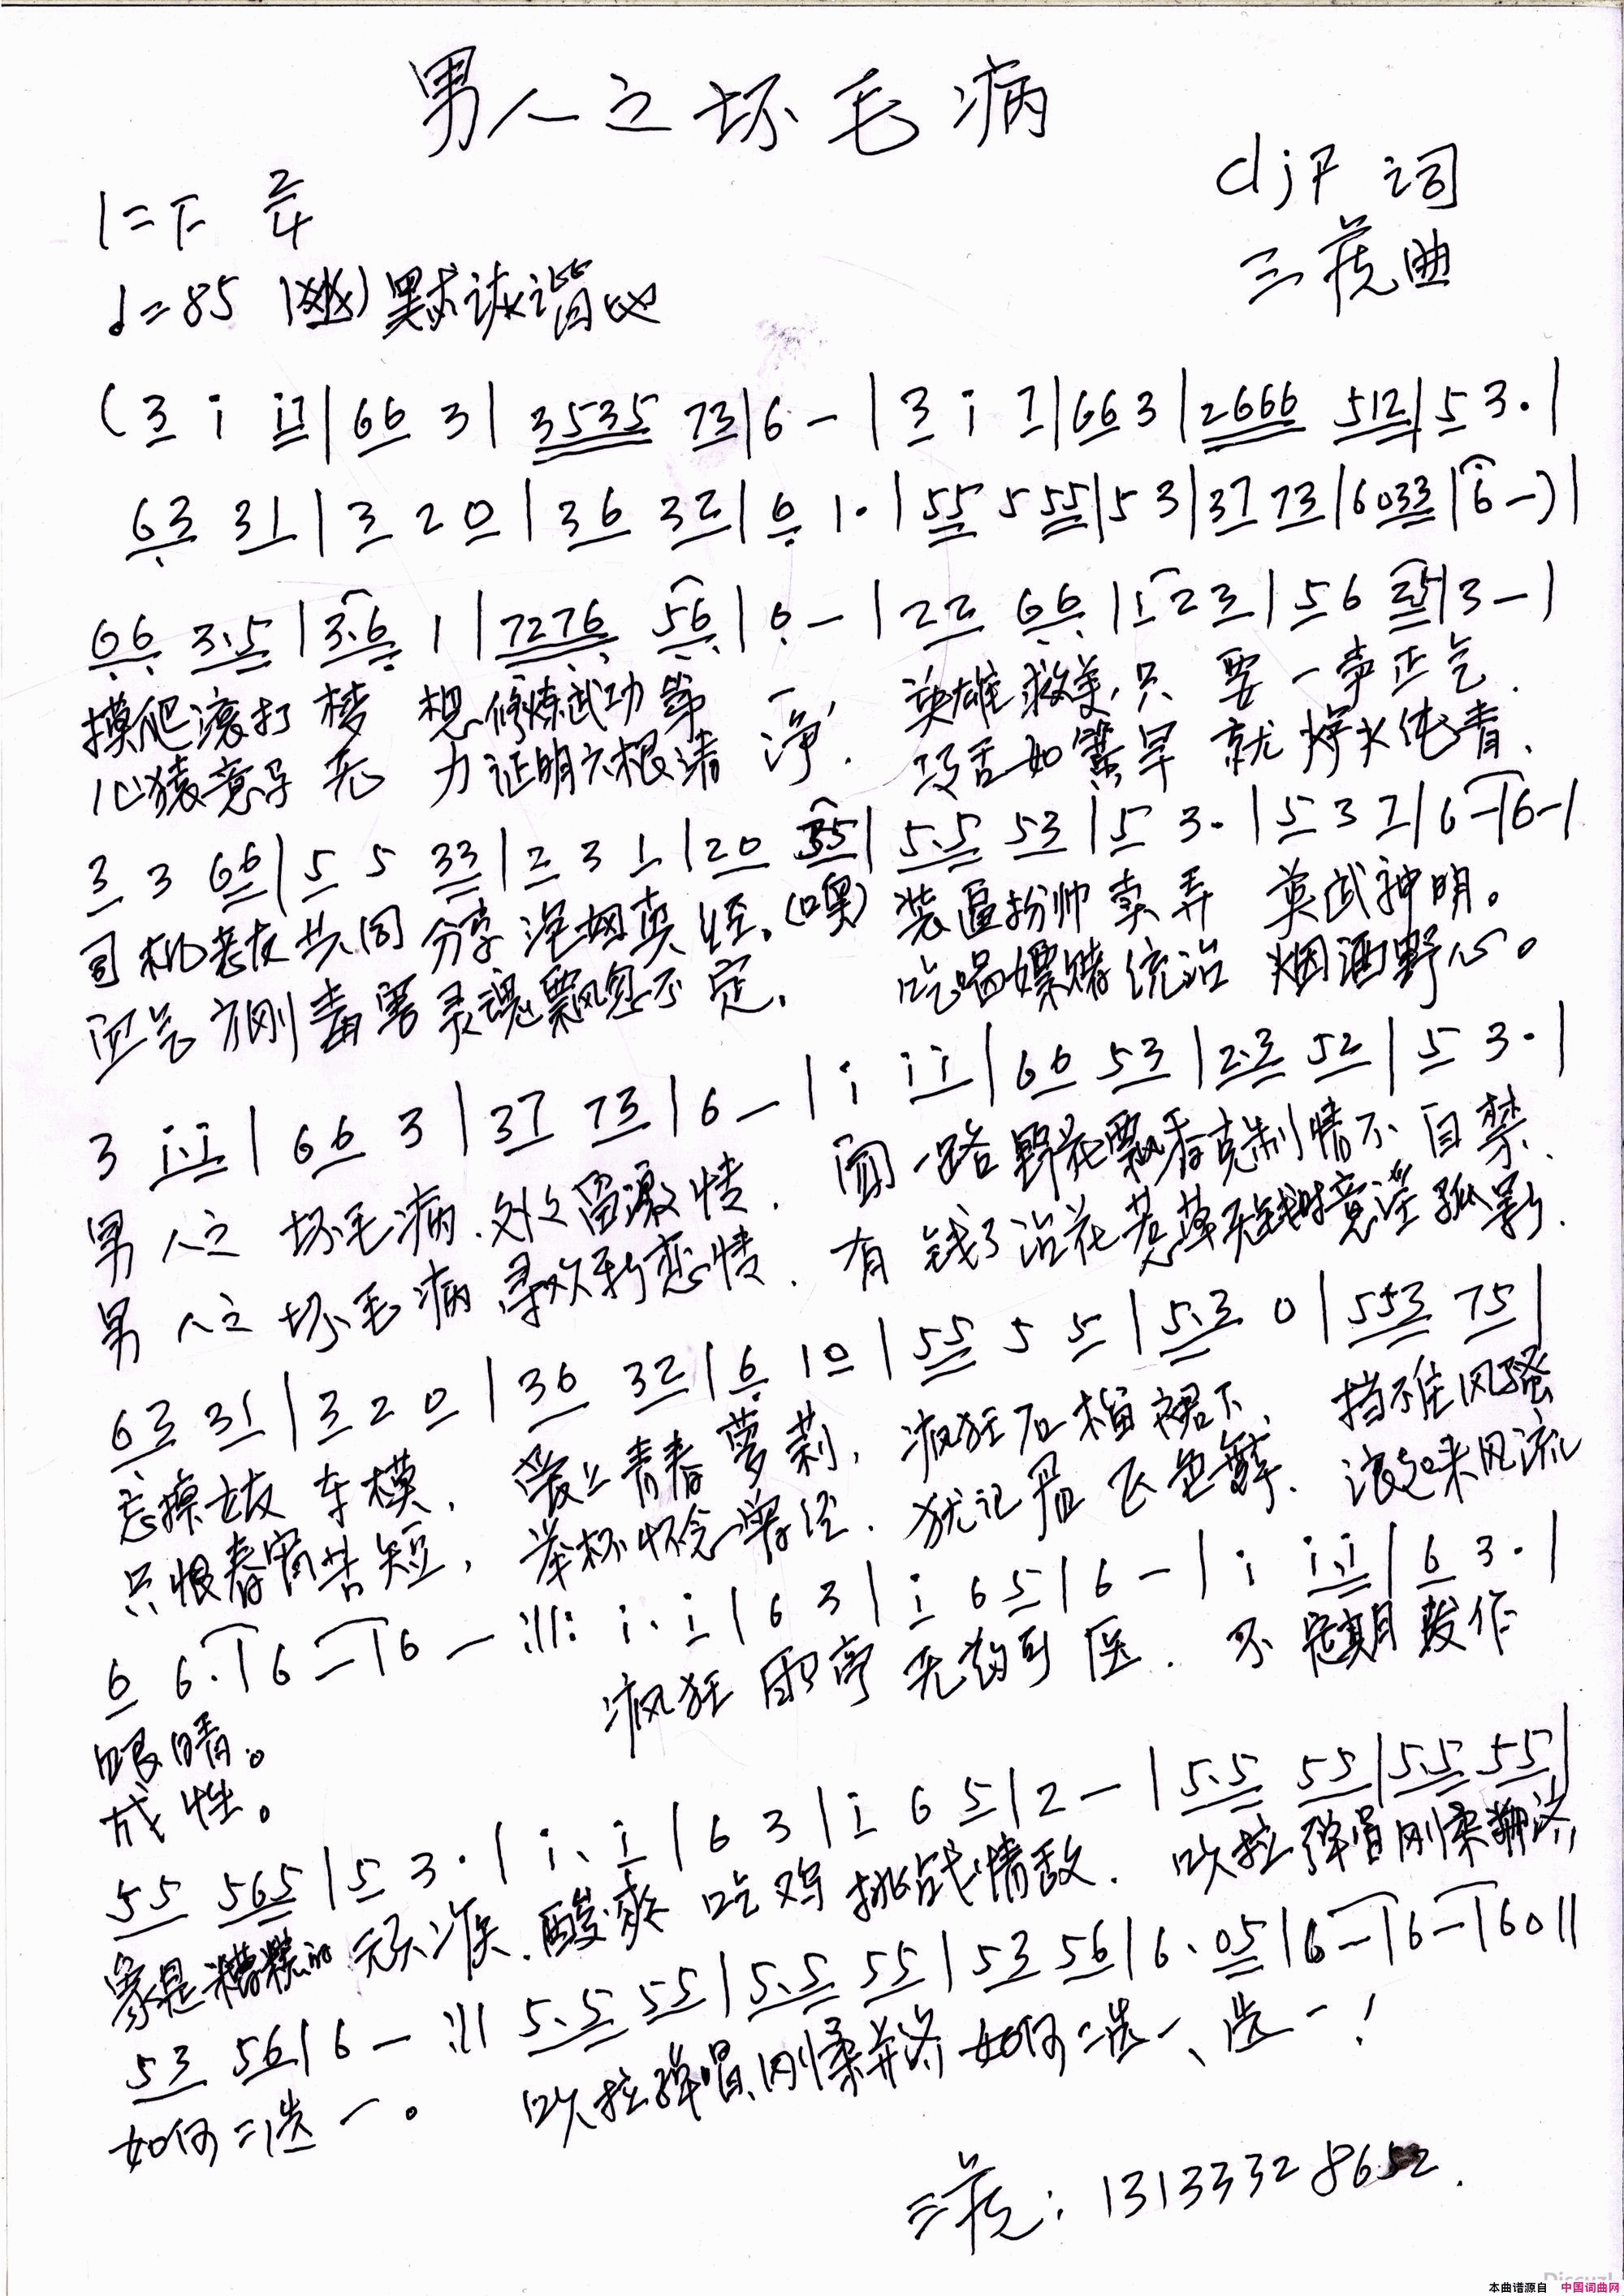 男人之坏毛病
1=F 2/4
djF 词
三荒曲
♩=85 (幽)默诙谐地
(3 i i7|66 3|3535 73|6 -|3 i 7|663|2666 512|5 3·|
63 31|3 2 0|36 32|6 1·|55 5 55|5 3|37 73|6033|6 -)|
66 3·5|3·6 1|7276 56|6 -|22 66|1 23|56 35|3 -|
摸爬滚打梦 想修炼武功第一, 英雄救美,只 要一声正气.
心猿意马无 力证明六根清净. 巧舌如簧早 就炉火纯青.
3 3 66|5 5 33|2 3 1|20 35|5·5 53|5 3·|5 3 7|6-|6-|
司机老友共同分享 泡妞真经.(噢) 装逼扮帅卖弄 英武神明。
血气方刚毒害灵魂飘忽不定. 吃喝嫖赌统治 烟酒野心。
3 i·i|66 3|37 73|6 -|i ii|66 53|2·3 52|5 3·|
男人之 坏毛病.处处留激情. 闻一路野花飘香克制情不自禁.
男人之 坏毛病寻欢新恋情. 有钱了沾花惹草无钱时意淫孤影.
63 31|3 2 0|36 32|6 10|55 5 5|5·3 0|553 75|
忘掉女友车模, 爱上青春萝莉, 疯狂石榴裙下, 挡不住风骚
只恨春宵苦短, 举杯怀念曾经. 犹记眉飞色舞. 滚起来风流
6 6·|6 -|6 - :||: i· i|6 3|i 6 5|6 -|i i·i|6 3·|
眼睛。 疯狂 无药可医. 不定期发作
成性。
55 565|5 3·|i· i|6 3|i 6 5|2 -|5·5 55|5·5 55|
象是糟糕的元天津.酸爽 吃鸡挑战情敌. 吹拉弹唱刚柔并济
53 56|6 - :|| 5·5 55|5·5 55|53 56|6·05|6-|6-|60||
如何二选一。 吹拉弹唱刚柔并济如何二选一、选一!
三荒: 13133328652.
Discuz!
本曲谱源自 中国词曲网